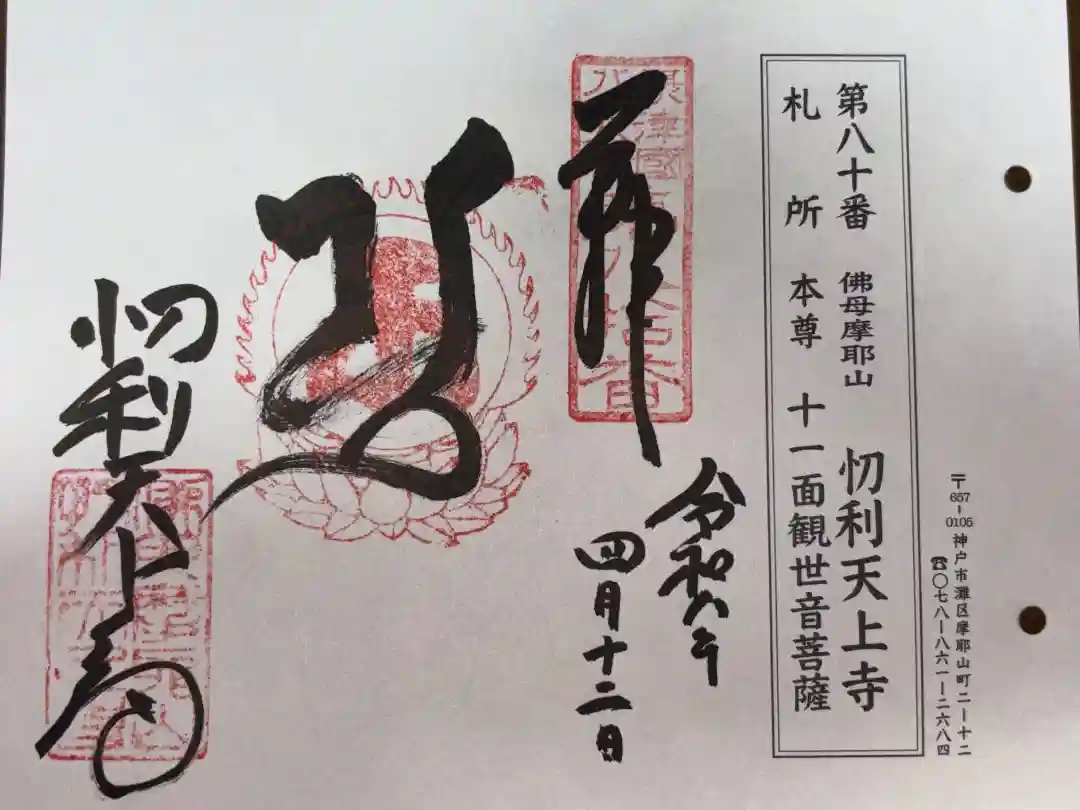 〒657-0105 神戸市灘区摩耶山町二ー十二
☎〇七八ー八六一ー二六八四
第八十番 佛母摩耶山 忉利天上寺
札所 本尊 十一面観世音菩薩
令和八年
四月十二日
忉利天上寺